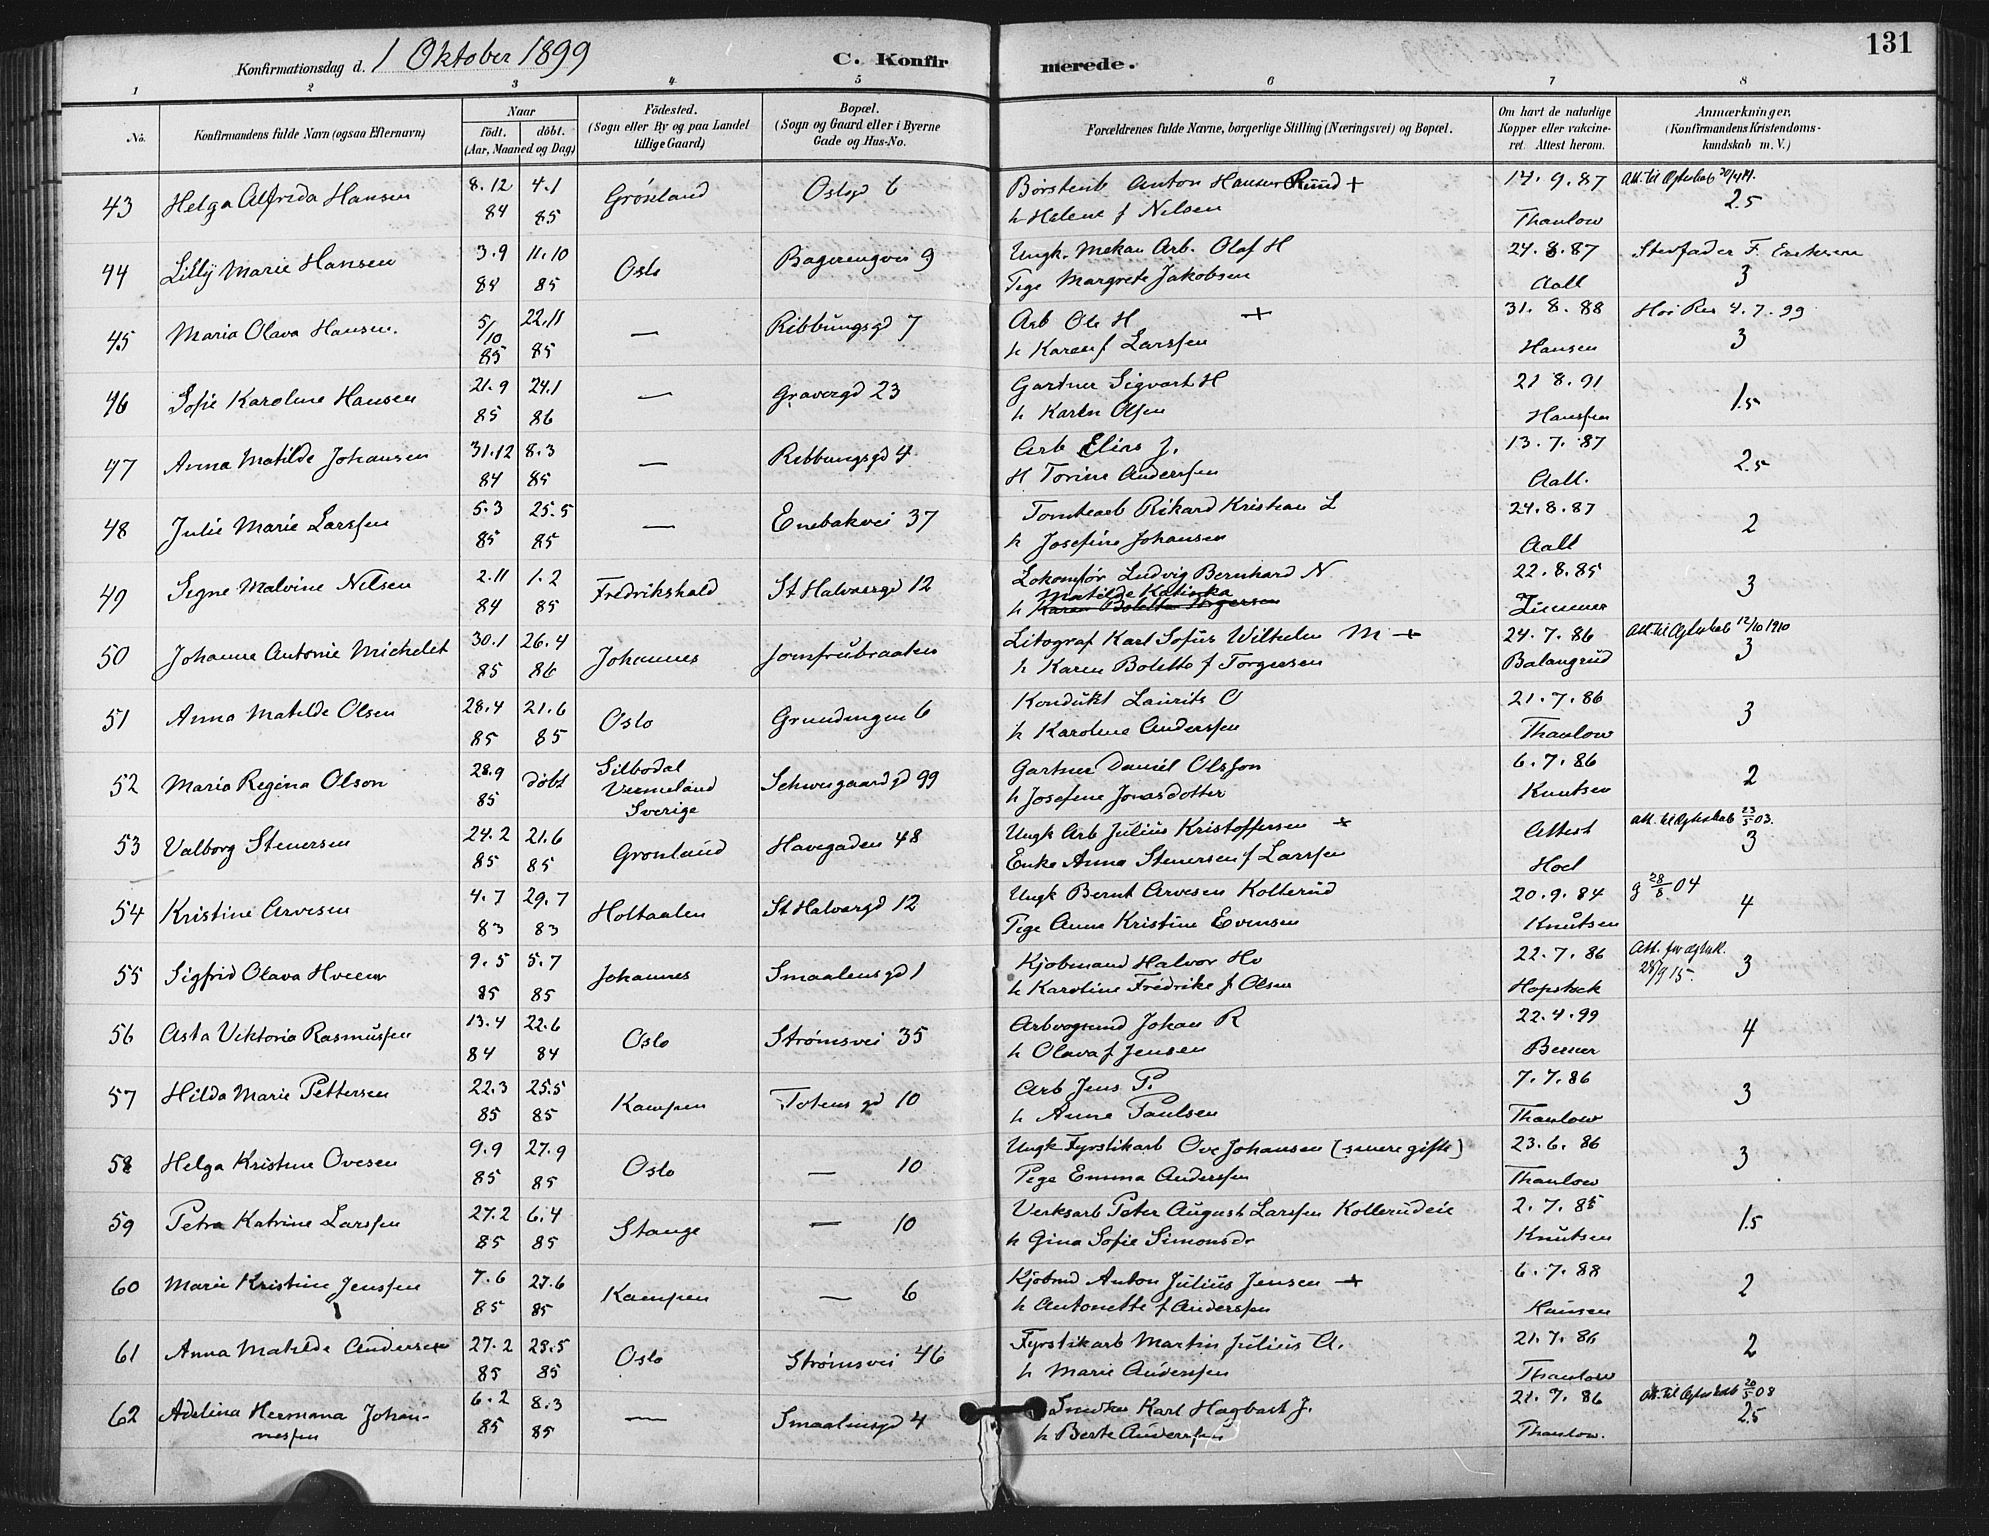 Konfirmationsdag d. 1 Oktober 1899 C. Konfirmerede. 131
1 2 3 4 5 6 7 8
No. Konfirmandens fulde Navn (ogsaa Efternavn) Naar födt. döbt. (Aar, Maaned og Dag) Födested. (Sogn eller By og paa Landet tillige Gaard) Bopæl. (Sogn og Gaard eller i Byerne Gade og Hus-No. Forældrenes fulde Navne, borgerlige Stilling (Næringsvei) og Bopæl. Om havt de naturlige Kopper eller vakcineret. Attest herom. Anmærkninger, (Konfirmandens Kristendomskundskab m. V.)
43 Helga Alfrida Hansen 8.12 84 4.1 85 Grönland Oslogd 6 Børstenb Anton Hansen Ruud + 14.9.87 Att. til Ægteskab
h Helene f Nilsen Thaulow 2.5
44 Lilly Marie Hansen 3.9 84 11.10 85 Oslo Bagerengvei 9 Ungk. Mekan Arb. Olaf H 24.8.87 Stevfader F. Eriksen
Pige Margrete Jakobsen Aall 3
45 Maria Olava Hansen. 5/10 85 22.11 85 — Ribbungsgd 7 Arb Ole H + 31.8.88 4.7.99
h Karen f Larssen Hansen 3
46 Sofie Karoline Hansen 21.9 85 24.1 86 — Gravergd 23 Gartner Sigvart H 21 8.91
h Karen Olsen Hanssen 1.5
47 Anna Matilde Johansen 31.12 84 8.3 85 — Ribbungsgd 4. Arb Elias J. 13.7.87
H Torine Anderssen Aall. 2.5
48 Julie Marie Larssen 5.3 85 25.5 85 — Enebakvei 37 Tomtearb Rikard Kristian L 24.8.87
h Josefine Johansen Aall 2
49 Signe Malvine Nilsen 2.11 84 1.2 85 Fredrikshald St Halvorsgd 12 Lokomfør Ludvig Bernhard N 22.8.85
Matilde Katinka
h Karen Bolette Torgersen Zimmer 3
50 Johanne Antonie Michelet 30.1 85 26.4 86 Johannes Jomfrubraaten Litograf Karl Sofus Wilhelm M + 24.7.86 Att. til Ægteskab 12/10 1910
h Karen Bolette f Torgersen Balangrud 3
51 Anna Matilde Olsen 28.4 85 21.6 85 Oslo Grundingen 6 Kondukt Laurits O 21.7.86
h Karoline Anderssen Thaulow 3
52 Maria Regina Olson 28.9 85 döbt Silbodal Vermeland Sverige Schweigaardgd 99 Gartner Daniel Olsson 6.7.86
h Josefine Jonasdotter Knutsen 2
53 Valborg Stenersen 24.2 85 21.6 85 Grönland Havegaden 48 Ungk Arb Julius Kristoffersen + Attest Att. til Ægteskab 23/5 03.
Enke Anna Stenersen f Larssen Hoel 3
54 Kristine Arvesen 4.7 83 29.7 83 Holtaalen St Halvorgd 12 Ungk Bernt Arvesen Kolterud 20.9.84 g 28/8 04
Pige Anne Kristine Evensen Knutsen 4
55 Sigfrid Olava Hveem 9.5 85 5.7 85 Johannes Smaalensgd 1 Kjøbmand Halvor Hv 22.7.86 Att. for ægtesk. 28/9 15.
h Karoline Fredrike f Olsen Hopstock 3
56 Asta Viktoria Rasmussen 13.4 84 22.6 84 Oslo Strømsvei 35 Johan R 22.4.99
h Olava f Jensen Berner 4
57 Hilda Marie Pettersen 22.3 85 25.5 85 Kampen Totens gd 10 Arb Jens P. 7.7.86
h Anne Paulsen Thaulow 3
58 Helga Kristine Ovesen 9.9 85 27.9 85 Oslo — 10 Ungk Fyrstikarb Ove Johansen (senere gifte) 23.6.86
Pige Emma Anderssen Thaulow 3
59 Petra Katrine Larssen 27.2 85 6.4 85 Stange — 10 Verksarb Peter August Larssen Kollerudeie 2.7.85
h Gina Sofie Simonsdr Knutsen 1.5
60 Marie Kristine Jenssen 7.6 85 27.6 85 Kampen — 6 Kjøbmd Anton Julius Jensen + 6.7.88
h Antonette f Anderssen Hansen 2
61 Anna Matilde Andersen 27.2 85 28.5 85 Oslo Strømsvei 46 Fyrstikarb Martin Julius A. 21.7.86
h Marie Anderssen Thaulow 2
62 Adelina Hermana Johannessen 6.2 85 8.3 85 — Smaalensgd 4 Smed Karl Hagbart J. 21.7.86 Att. til Ægteskab 20/5 08
h Berte Anderssen Thaulow. 2.5